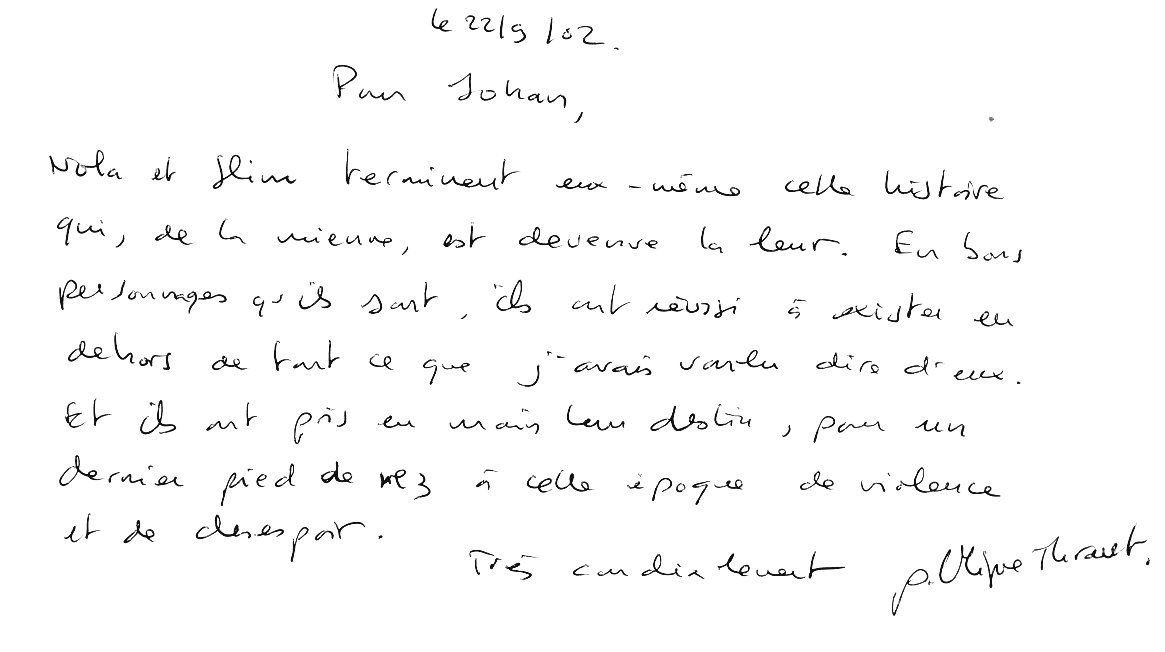 le 22/9/02.
Pour Johan,
Nola et Slim terminent eux-même cette histoire
qui, de la mienne, est devenue la leur. En bons
personnages qu'ils sont, ils ont réussi à exister en
dehors de tout ce que j'avais voulu dire d'eux.
Et ils ont pris en main leur destin, pour un
dernier pied de nez à cette époque de violence
et de desespoir.
Très cordialement